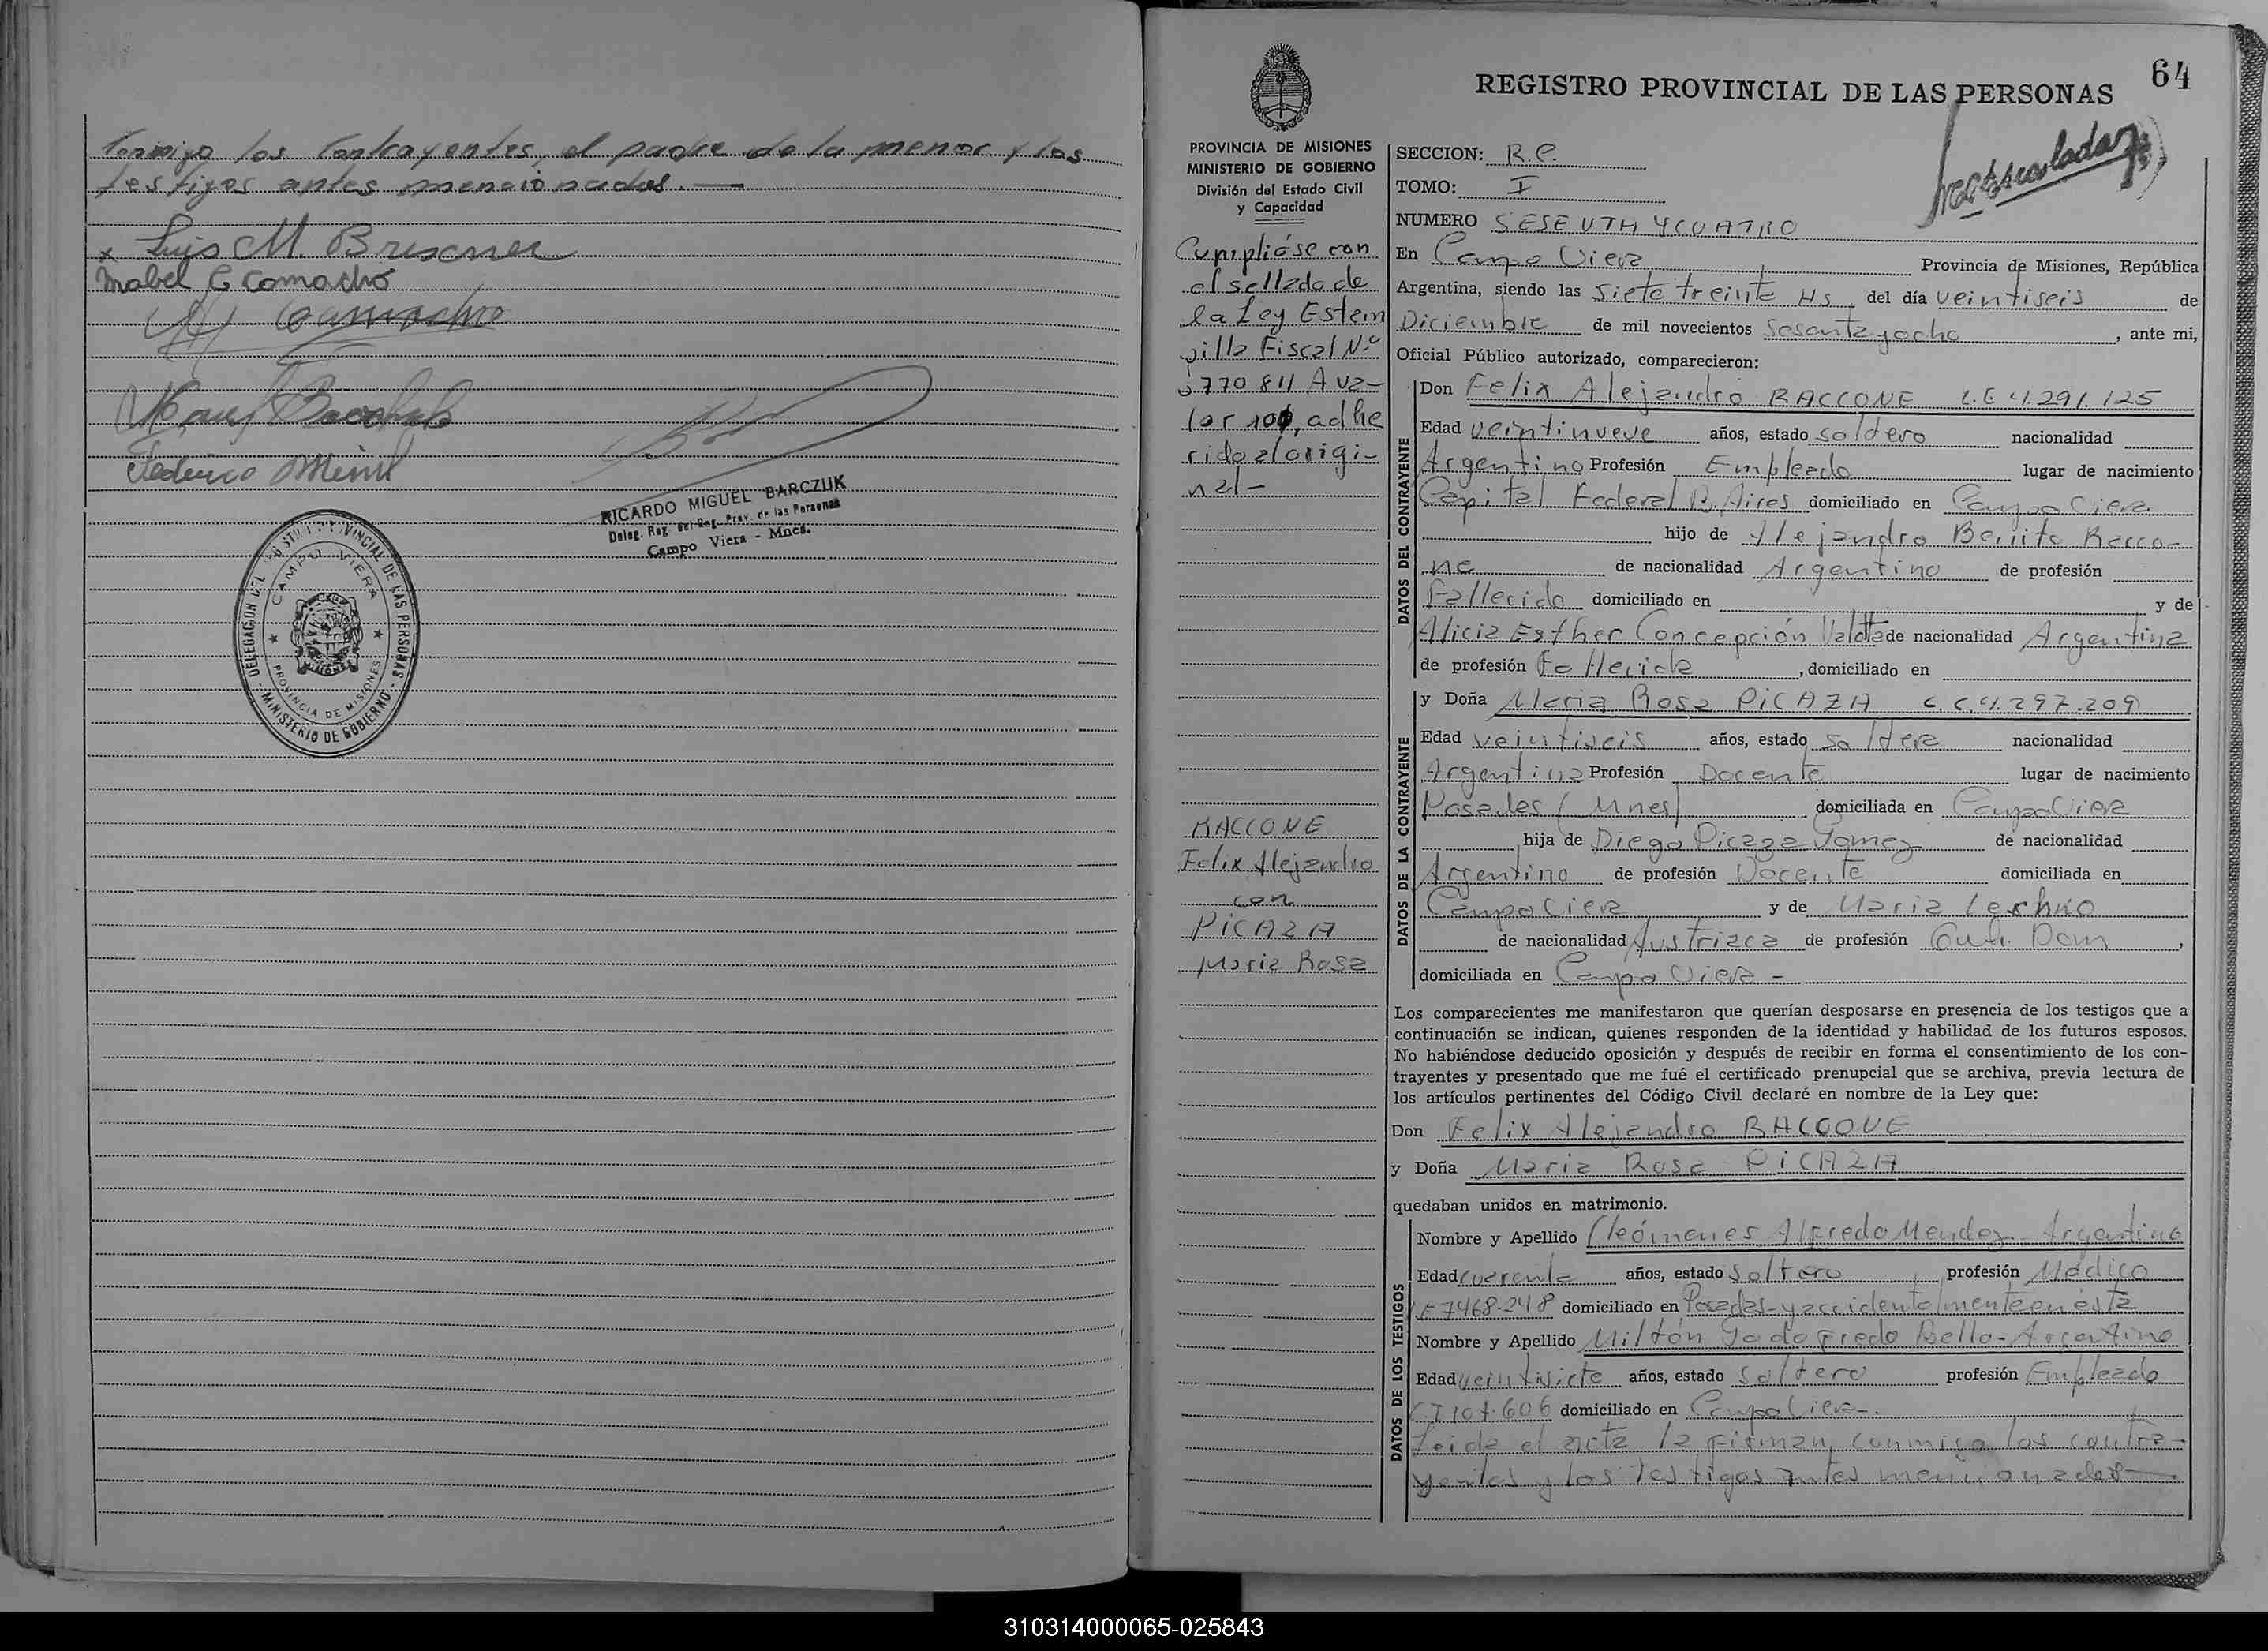 conmigo los contrayentes, el padre de la menor y los
testigos antes mencionados.—
x Luis M. Bruscner
Mabel G Camacho
Camacho
Federico
RICARDO MIGUEL BARCZUK
Deleg. Reg. del Reg. Prov. de las Personas
Campo Viera - Mnes.
DELEGACION DEL REGISTRO PROVINCIAL DE LAS PERSONAS - MINISTERIO DE GOBIERNO -
CAMPO VIERA
PROVINCIA DE MISIONES
64
REGISTRO PROVINCIAL DE LAS PERSONAS
PROVINCIA DE MISIONES
MINISTERIO DE GOBIERNO
División del Estado Civil
y Capacidad
Cumplióse con
el sellado de
la Ley Estam
pilla Fiscal Nº
5770811 A va-
lor 100, adhe
rida al origi-
nal-
RACCONE
Felix Alejandro
con
PICAZA
Maria Rosa
SECCION: R.C.
TOMO: I
NUMERO SESENTA Y CUATRO
En Campo Viera Provincia de Misiones, República
Argentina, siendo las Siete treinta Hs del día veintiseis de
Diciembre de mil novecientos Sesenta y ocho, ante mi,
Oficial Público autorizado, comparecieron:
DATOS DEL CONTRAYENTE
Don Felix Alejandro RACCONE L.E 4.291.125
Edad veintinueve años, estado soltero nacionalidad
Argentino Profesión Empleado lugar de nacimiento
Capital Federal B. Aires domiciliado en Campo Viera
hijo de Alejandro Benito Racco-
ne de nacionalidad Argentino de profesión
Fallecido domiciliado en y de
Alicia Esther Concepción de nacionalidad Argentina
de profesión Fallecida, domiciliado en
DATOS DE LA CONTRAYENTE
y Doña Maria Rosa PICAZA L.C.4.297.209
Edad veintiseis años, estado soltera nacionalidad
Argentina Profesión Docente lugar de nacimiento
Posadas (Mnes) domiciliada en Campo Viera
hija de Diego Picaza Gomez de nacionalidad
Argentino de profesión Docente domiciliada en
Campo Viera y de Maria Leshko
de nacionalidad Austriaca de profesión Dom,
domiciliada en Campo Viera -
Los comparecientes me manifestaron que querían desposarse en presencia de los testigos que a
continuación se indican, quienes responden de la identidad y habilidad de los futuros esposos.
No habiéndose deducido oposición y después de recibir en forma el consentimiento de los con-
trayentes y presentado que me fué el certificado prenupcial que se archiva, previa lectura de
los artículos pertinentes del Código Civil declaré en nombre de la Ley que:
Don Felix Alejandro RACCONE
y Doña Maria Rosa PICAZA
quedaban unidos en matrimonio.
DATOS DE LOS TESTIGOS
Nombre y Apellido Cleómenes Alfredo Mendez - Argentino
Edad cuarenta años, estado Soltero profesión Médico
LE 7468.248 domiciliado en Posadas-y accidentalmente en ésta
Nombre y Apellido Miltón Godofredo Bello - Argentino
Edad veintisiete años, estado Soltero profesión Empleado
CI 107.606 domiciliado en Campo Viera-.
Leida el acta la firman, conmigo los contra-
yentes y los testigos antes mencionados—
310314000065-025843